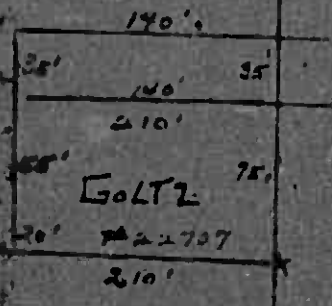 140'
35' 35'
140'
210'
55' 75'
GOLTZ
20' #22707
210'